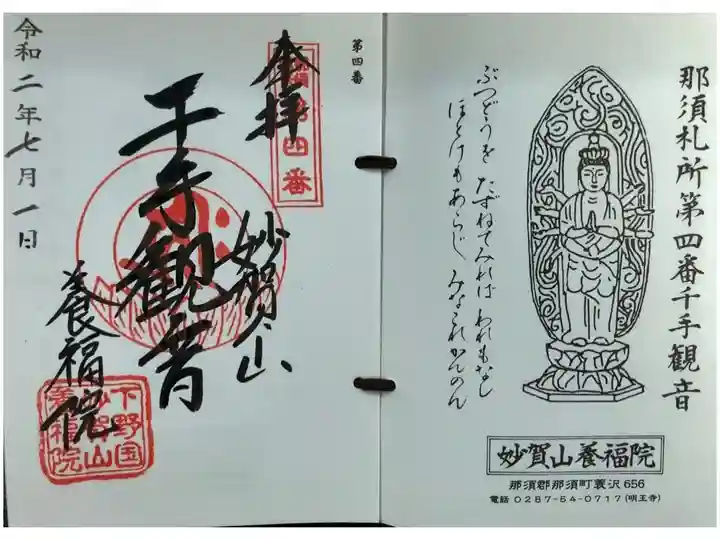 那須札所第四番千手観音
ぶつどうを たずねてみれば われもなし
ほとけもあらじ みなこれかんのん
妙賀山養福院
那須郡那須町蓑沢656
電話 0287-54-0717(明王寺)
第四番
奉拝
第四番
千手観音
妙賀山
養福院
令和二年七月一日
下野国
妙賀山
養福院